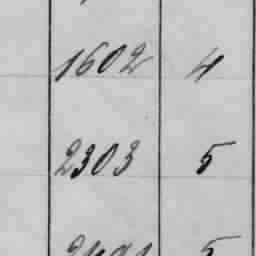 1602 4
2303 5
5